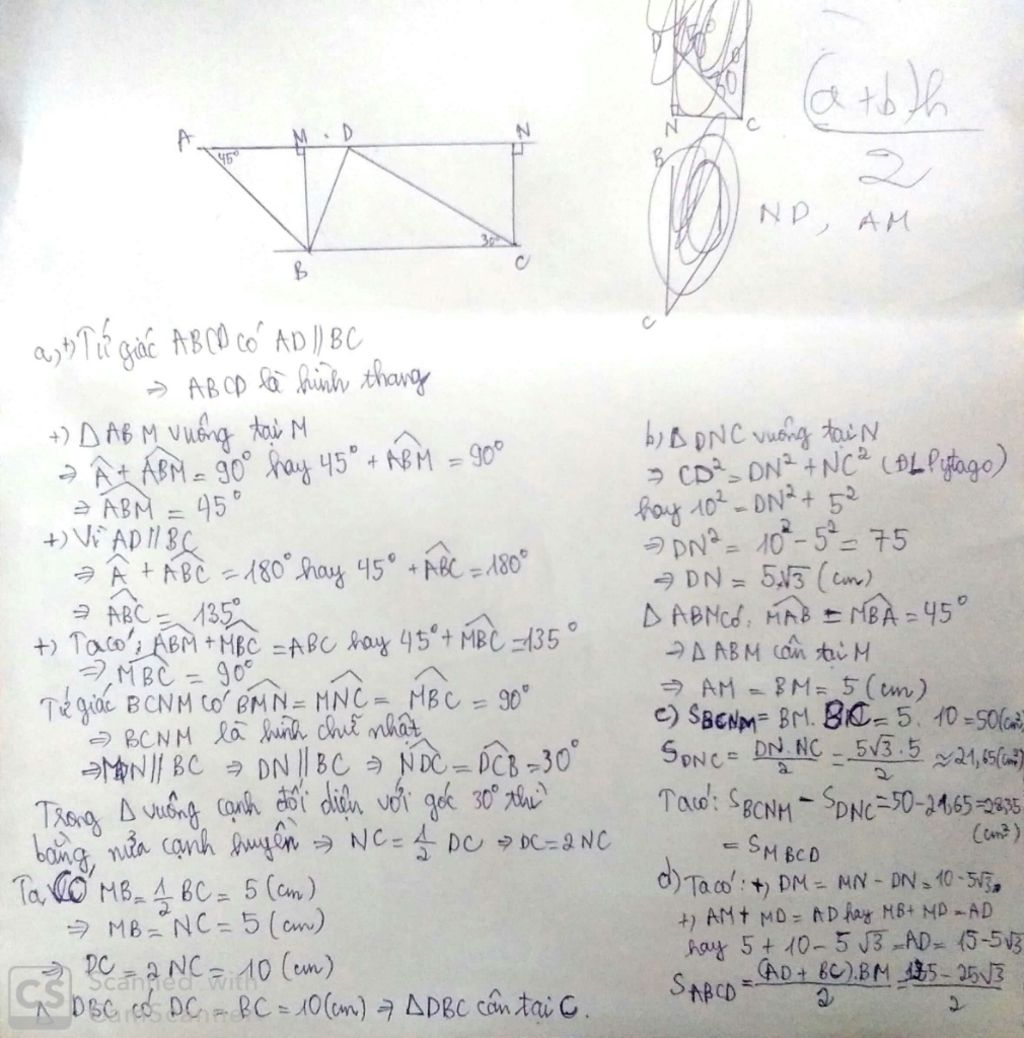 A
45°
M
D
N
B
30°
C
D
50°
30
N
C
B
C
(a+b)h
2
ND, AM
a, +) Tứ giác ABCD có AD // BC
⇒ ABCD là hình thang
+) ΔABM vuông tại M
⇒ Â + ABM = 90° hay 45° + ABM = 90°
⇒ ABM = 45°
+) Vì AD // BC
⇒ Â + ABC = 180° hay 45° + ABC = 180°
⇒ ABC = 135°
+) Ta có: ABM + MBC = ABC hay 45° + MBC = 135°
⇒ MBC = 90°
Tứ giác BCNM có BMN = MNC = MBC = 90°
⇒ BCNM là hình chữ nhật
⇒ MN // BC ⇒ DN // BC ⇒ NDC = DCB = 30°
Trong Δ vuông cạnh đối diện với góc 30° thì
bằng nửa cạnh huyền ⇒ NC = 1/2 DC ⇒ DC = 2NC
Ta có MB = 1/2 BC = 5 (cm)
⇒ MB = NC = 5 (cm)
⇒ DC = 2NC = 10 (cm)
Δ DBC có DC = BC = 10(cm) ⇒ ΔDBC cân tại C.
b) Δ DNC vuông tại N
⇒ CD² = DN² + NC² (ĐL Pytago)
hay 10² = DN² + 5²
⇒ DN² = 10² - 5² = 75
⇒ DN = 5√3 (cm)
Δ ABM có: MAB = MBA = 45°
⇒ Δ ABM cân tại M
⇒ AM = BM = 5 (cm)
c) SBCNM = BM. BC = 5. 10 = 50(cm²)
SDNC = DN.NC/2 = 5√3.5/2 ≈ 21,65(cm²)
Ta có: SBCNM - SDNC = 50-21,65=28,35
(cm²)
= SMBCD
d) Ta có: +) DM = MN - DN = 10-5√3
+) AM + MD = AD hay MB + MD = AD
hay 5 + 10 - 5√3 = AD = 15-5√3
SABCD = (AD + BC).BM/2 = 125 - 25√3/2
CS Scanned with
CamScanner